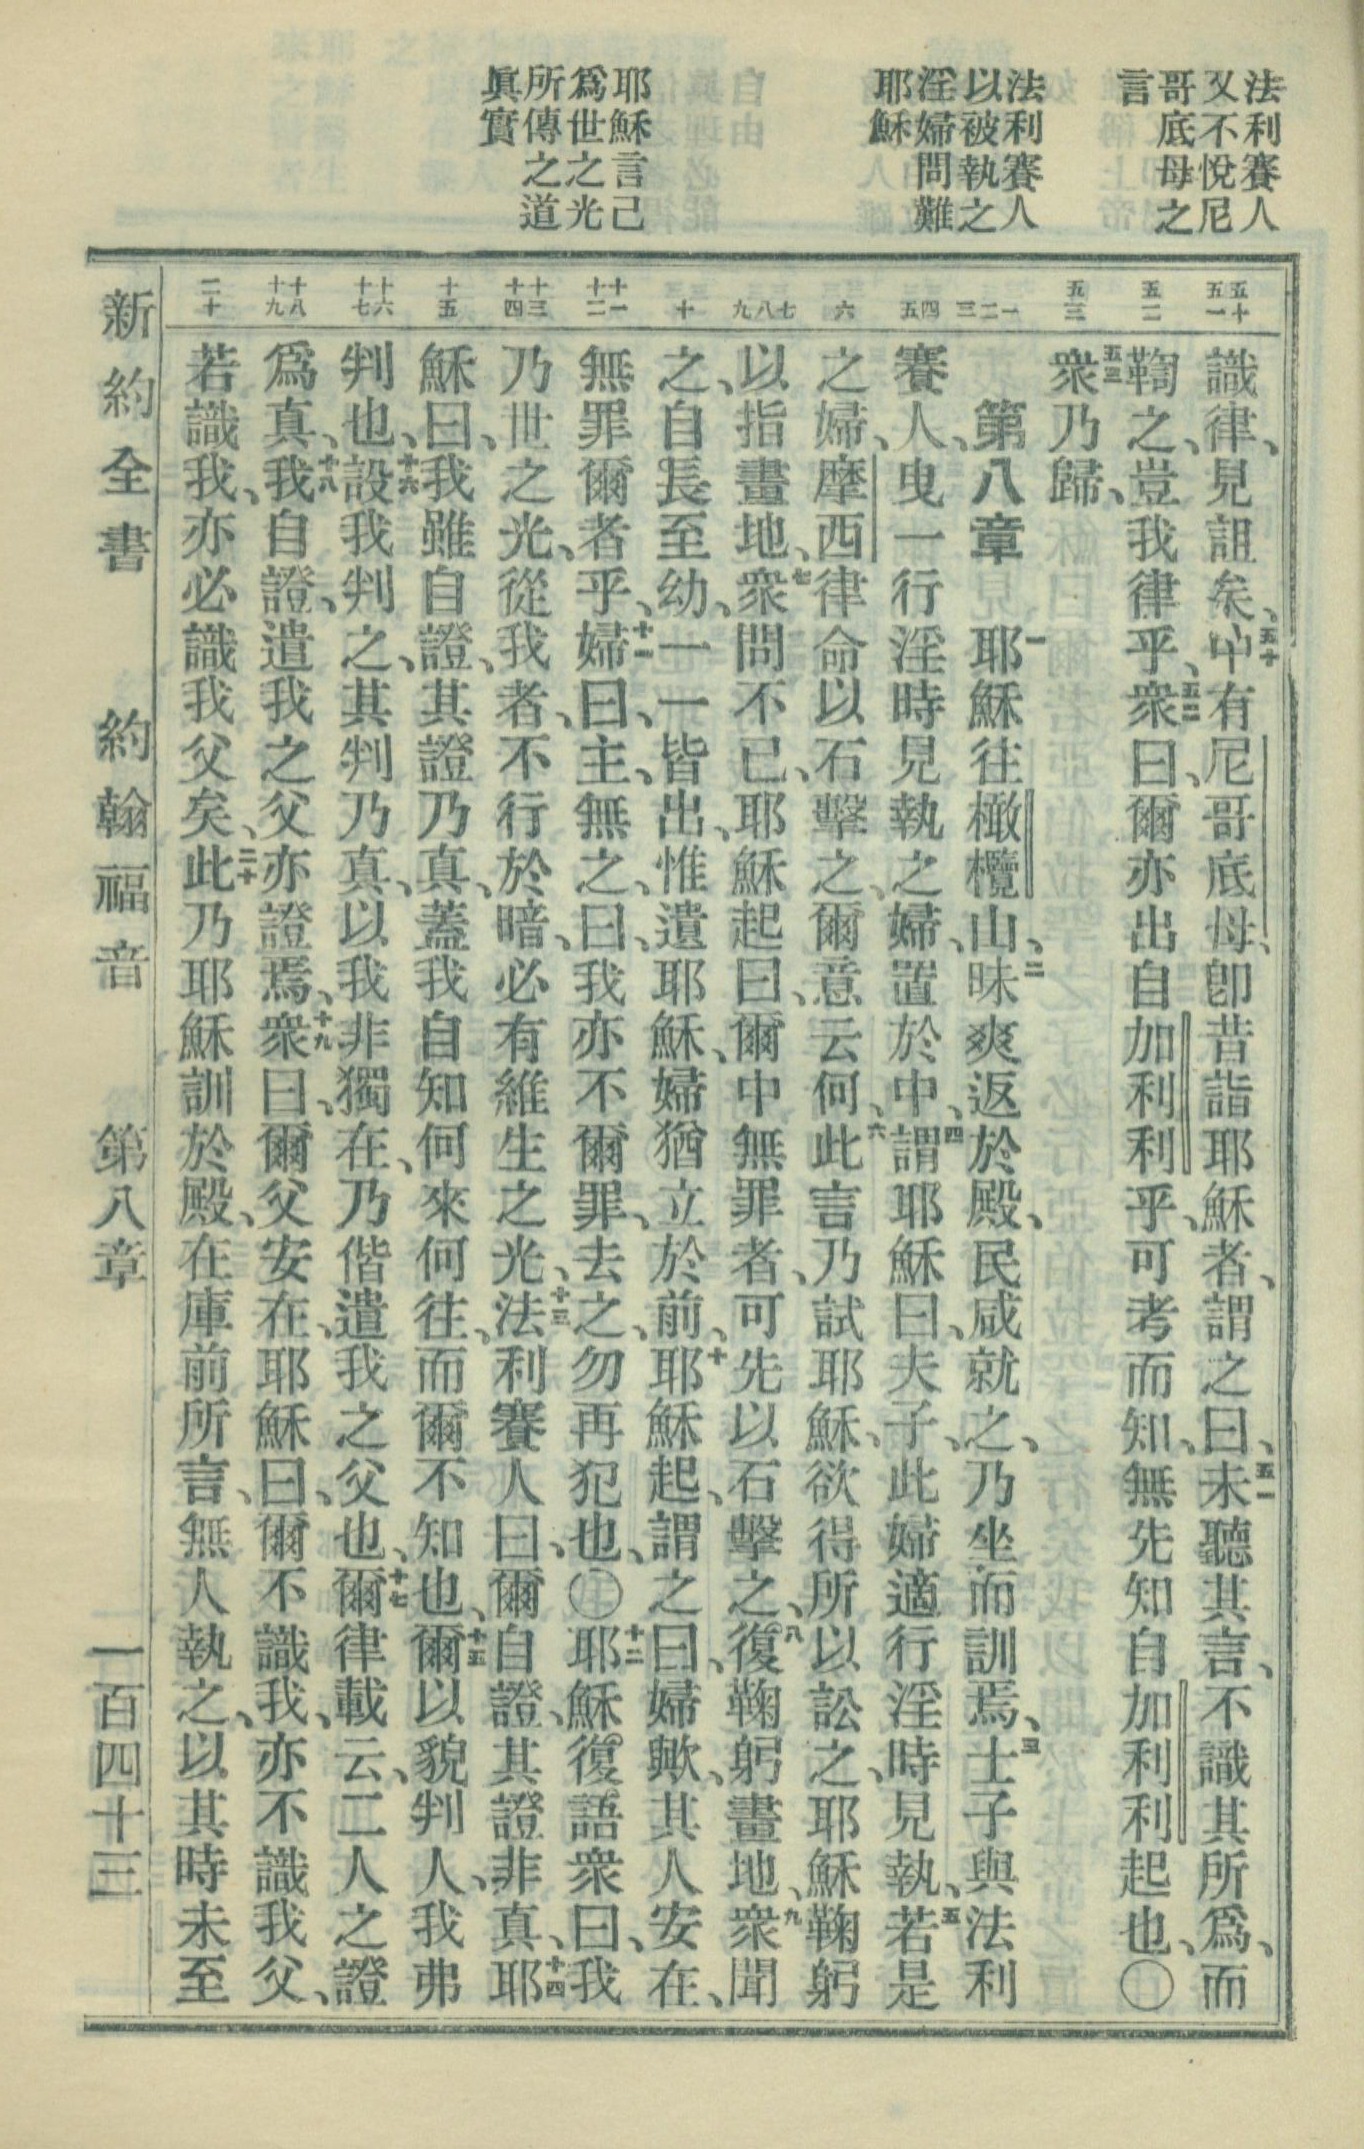 法利賽人
又不悅尼
哥底母之
言
法利賽人
以被執之
淫婦問難
耶穌
耶穌言己
爲世之光
所傳之道
眞實
五十
五一
五二
五三
一
二
三
四
五
六
七
八
九
十
十一
十二
十三
十四
十五
十六
十七
十八
十九
二十
識律、見詛矣、五十中有尼哥底母、卽昔詣耶穌者、謂之曰、五一未聽其言、不識其所爲、而
鞫之、豈我律乎、五二衆曰、爾亦出自加利利乎、可考而知、無先知自加利利起也、〇
五三衆乃歸、
第八章 一耶穌往橄欖山、二昧爽返於殿、民咸就之、乃坐而訓焉、三士子與法利
賽人、曳一行淫時見執之婦、置於中、四謂耶穌曰、夫子、此婦適行淫時見執、五若是
之婦、摩西律命以石擊之、爾意云何、六此言乃試耶穌、欲得所以訟之、耶穌鞠躬
以指畫地、七衆問不已、耶穌起曰、爾中無罪者、可先以石擊之、八復鞠躬畫地、九衆聞
之、自長至幼、一一皆出、惟遺耶穌、婦猶立於前、十耶穌起、謂之曰、婦歟、其人安在、
無罪爾者乎、十一婦曰、主、無之、曰、我亦不爾罪、去之、勿再犯也、〇十二耶穌復語衆曰、我
乃世之光、從我者、不行於暗、必有維生之光、十三法利賽人曰、爾自證、其證非真、十四耶
穌曰、我雖自證、其證乃真、蓋我自知何來何往、而爾不知也、十五爾以貌判人、我弗
判也、十六設我判之、其判乃真、以我非獨在、乃偕遣我之父也、十七爾律載云、二人之證
爲真、十八我自證、遣我之父亦證焉、十九衆曰、爾父安在、耶穌曰、爾不識我、亦不識我父、
若識我、亦必識我父矣、二十此乃耶穌訓於殿、在庫前所言、無人執之、以其時未至
新約全書 約翰福音 第八章 一百四十三